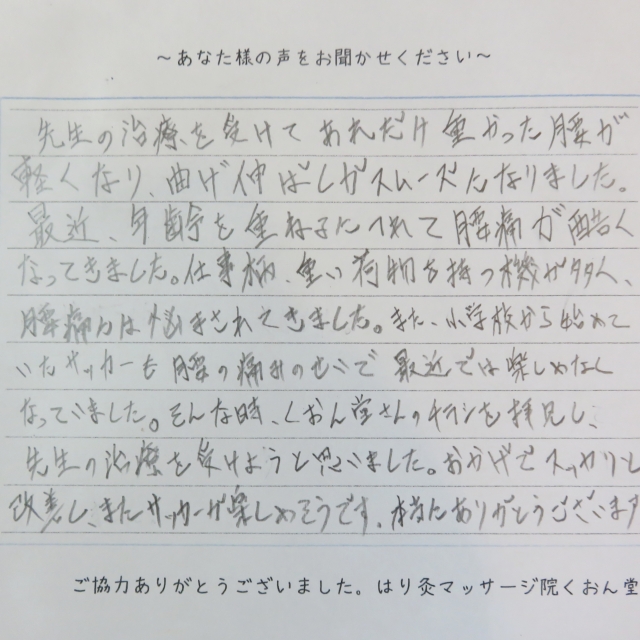 ～あなた様の声をお聞かせください～
先生の治療を受けてあれだけ重かった腰が
軽くなり、曲げ伸ばしがスムーズになりました。
最近、年齢を重ねるにつれて腰痛が酷く
なってきました。仕事柄、重い荷物を持つ機会が多く、
腰痛には悩まされてきました。また、小学校から始めて
いたサッカーも腰の痛みのせいで最近では楽しめなく
なっていました。そんな時、くおん堂さんのチラシを拝見し、
先生の治療を受けようと思いました。おかげでスッカリと
改善し、またサッカーが楽しめそうです。本当にありがとうございます
ご協力ありがとうございました。はり灸マッサージ院くおん堂